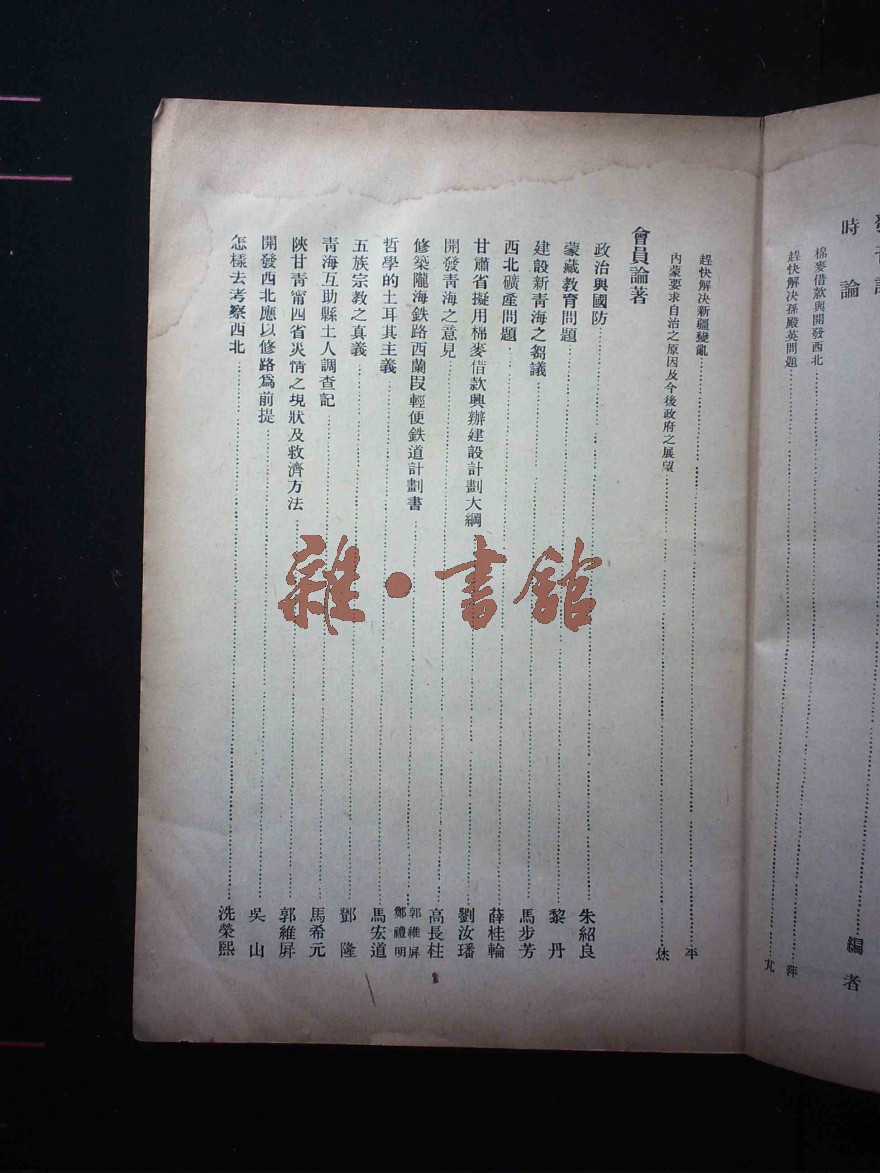 編者
時論
棉麥借款與開發西北 萍
趕快解決孫殿英問題
趕快解決新疆變亂 平
內蒙要求自治之原因及今後政府之展望
會員論著
政治與國防 朱紹良
蒙藏教育問題 黎丹
建設新青海之芻議 馬步芳
西北礦產問題 薛桂輪
甘肅省擬用棉麥借款興辦建設計劃大綱 劉汝璠
開發青海之意見 高長柱
修築隴海鉄路西蘭段輕便鉄道計劃書 郭維屏 鄭禮明
哲學的土耳其主義 馬宏道
五族宗教之真義 鄧隆
青海互助縣土人調查記 馬希元
陝甘青甯四省災情之現狀及救濟方法 郭維屏
開發西北應以修路為前提 吳山
怎樣去考察西北 洗榮熙
雜·書館